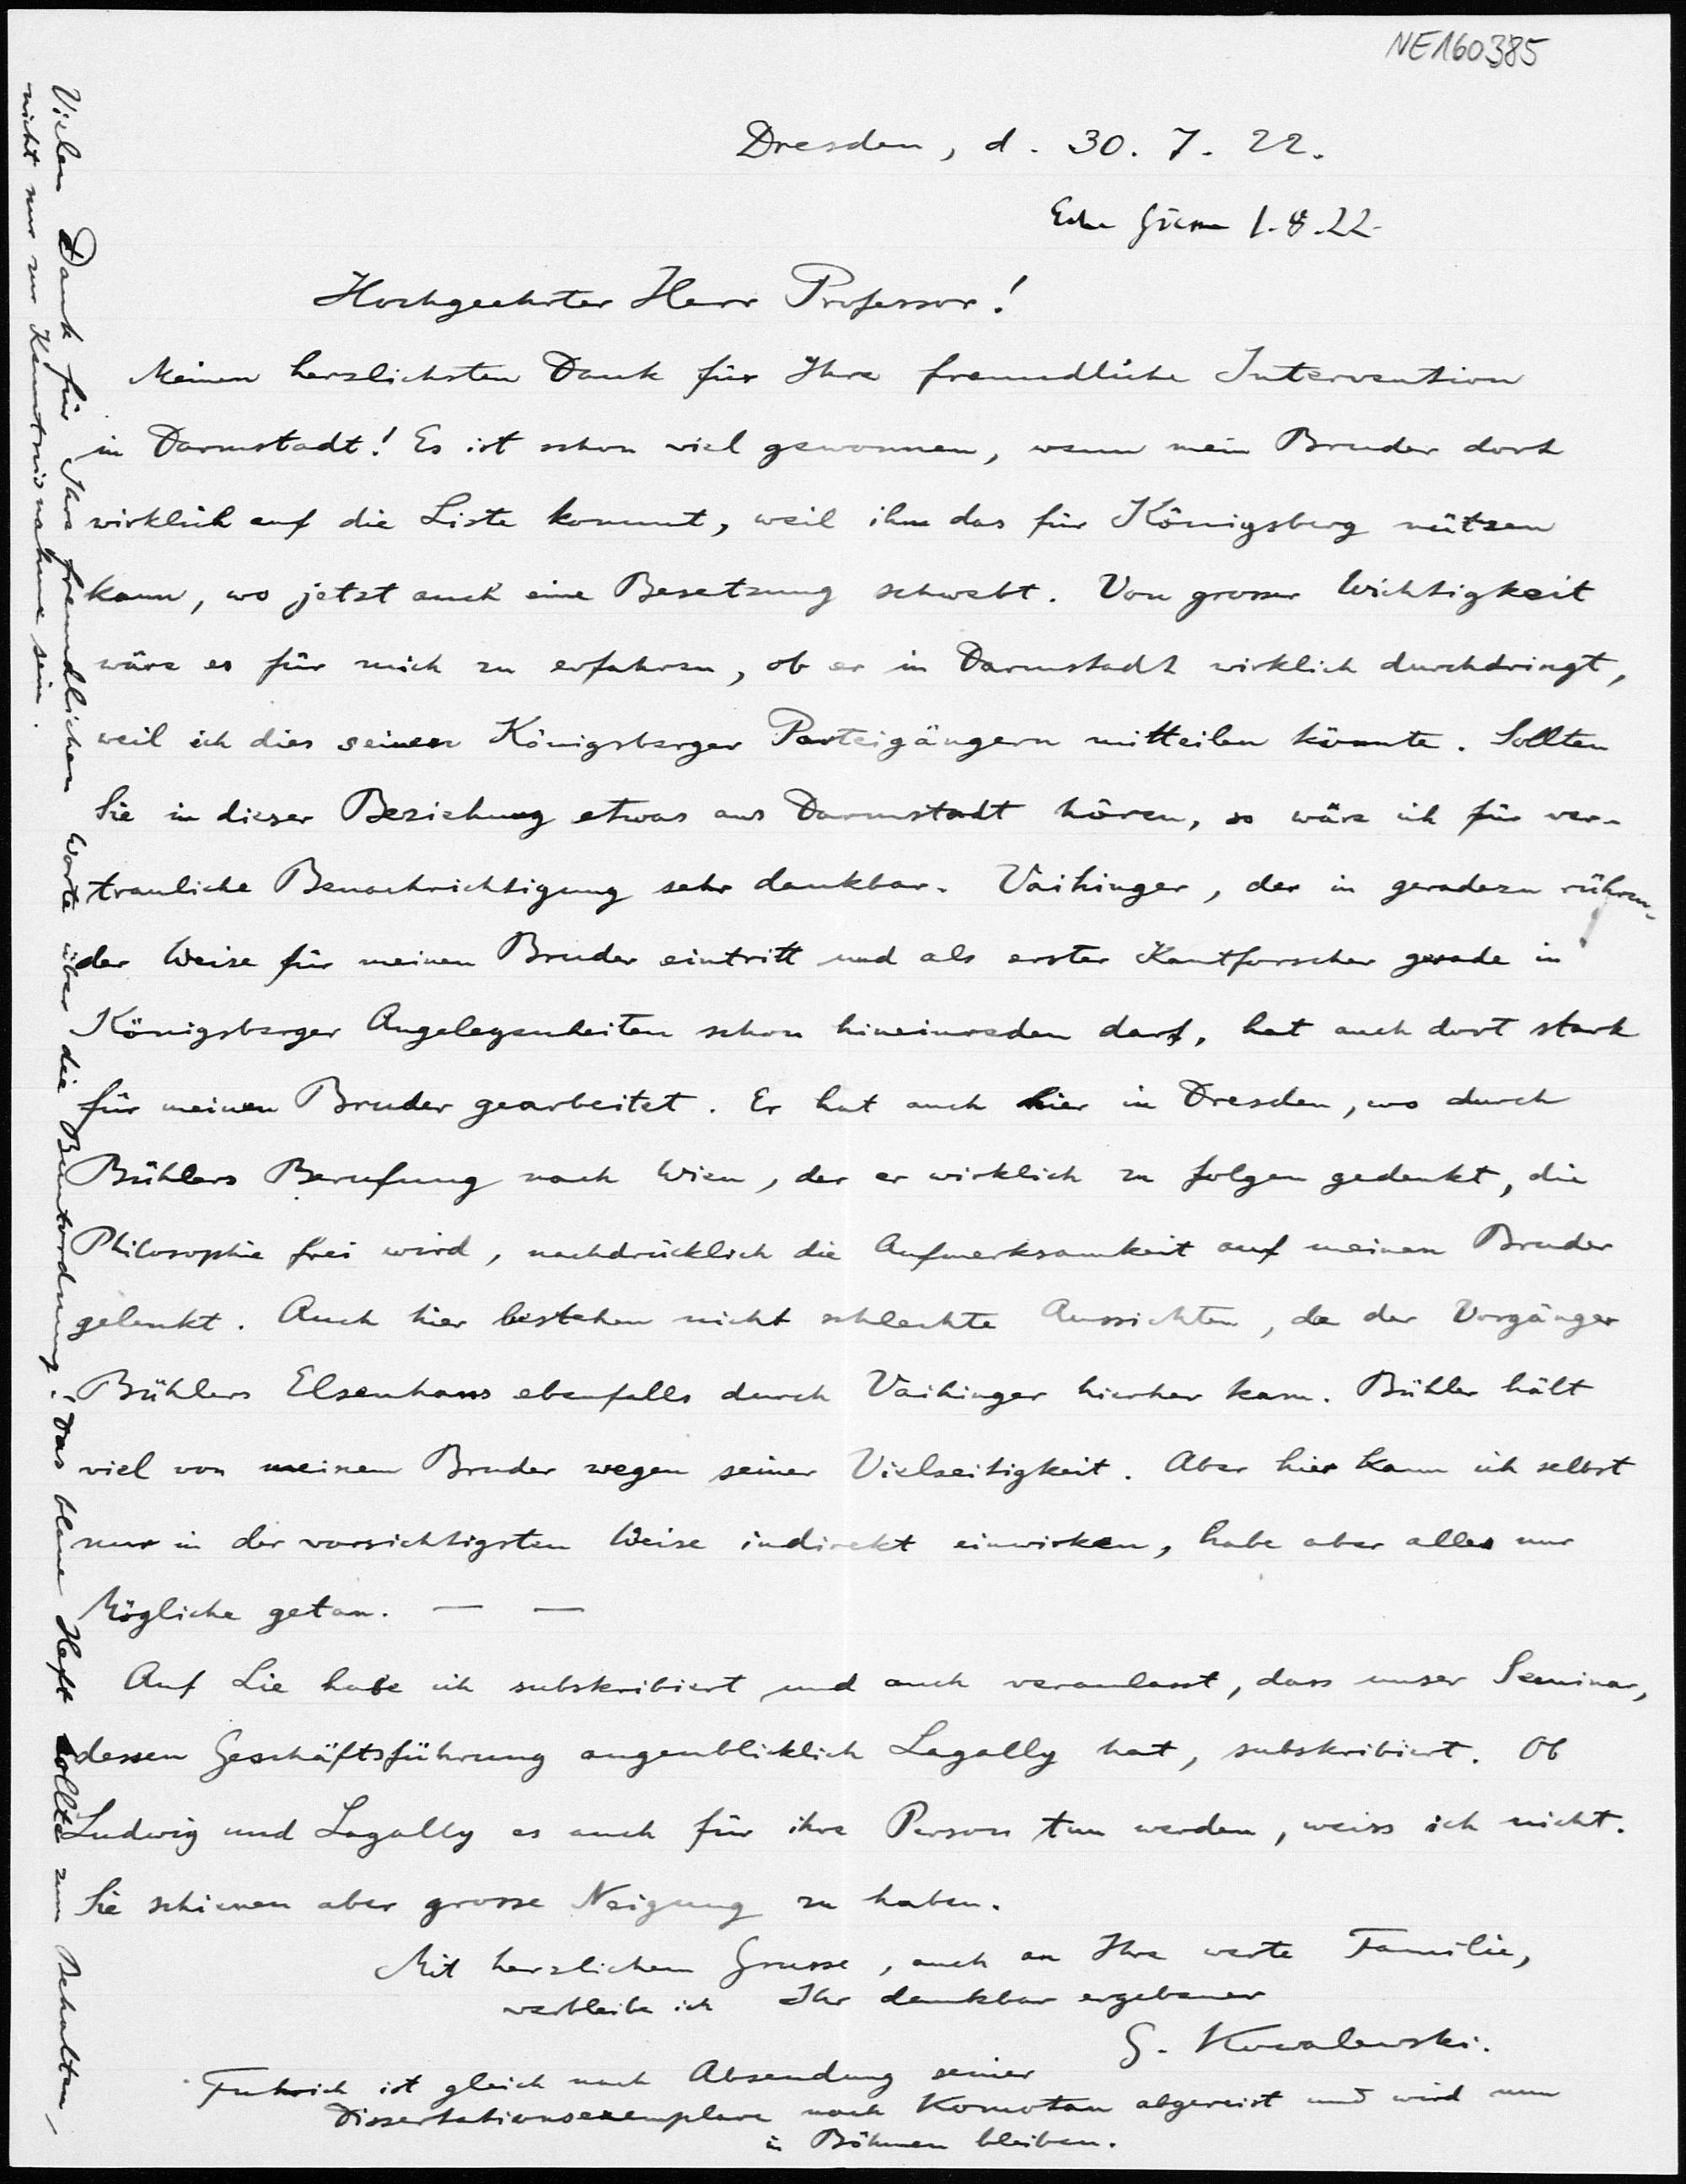 NE160385
Dresden, d. 30. 7. 22.
1.8.22.
Hochgeehrter Herr Professor!
Meinen herzlichsten Dank für Ihre freundliche Intervention
in Darmstadt! Es ist schon viel gewonnen, wenn mein Bruder dort
wirklich auf die Liste kommt, weil ihm das für Königsberg nützen
kann, wo jetzt auch eine Besetzung schwebt. Von grosser Wichtigkeit
wäre es für mich zu erfahren, ob er in Darmstadt wirklich durchdringt,
weil ich dies seinen Königsberger Parteigängern mitteilen könnte. Sollten
Sie in dieser Beziehung etwas aus Darmstadt hören, so wäre ich für ver-
trauliche Benachrichtigung sehr dankbar. Vaihinger, der in geradezu rühren-
der Weise für meinen Bruder eintritt und als erster Kantforscher gerade in
Königsberger Angelegenheiten schon hineinreden darf, hat auch dort stark
für meinen Bruder gearbeitet. Er hat auch hier in Dresden, wo durch
Bühlers Berufung nach Wien, der er wirklich zu folgen gedenkt, die
Philosophie frei wird, nachdrücklich die Aufmerksamkeit auf meinen Bruder
gelenkt. Auch hier bestehen nicht schlechte Aussichten, da der Vorgänger
Bühlers Elsenhans ebenfalls durch Vaihinger hierher kam. Bühler hält
viel von meinem Bruder wegen seiner Vielseitigkeit. Aber hier kann ich selbst
nur in der vorsichtigsten Weise indirekt einwirken, habe aber alles nur
Mögliche getan. — —
Auf Lie habe ich subskribiert und auch veranlasst, dass unser Seminar,
dessen Geschäftsführung augenblicklich Lagally hat, subskribiert. Ob
Ludwig und Lagally es auch für ihre Person tun werden, weiss ich nicht.
Sie schienen aber grosse Neigung zu haben.
Mit herzlichem Grusse, auch an Ihre werte Familie,
verbleibe ich Ihr dankbar ergebener
G. Kowalewski.
Fuhrich ist gleich nach Absendung seiner
Dissertationsexemplare nach Komotau abgereist und wird nun
in Böhmen bleiben.
Vielen Dank für Ihre freundlichen Worte über die Buntordnung. Das blaue Heft sollte zum Behalten,
nicht nur zur Kenntnisnahme sein.